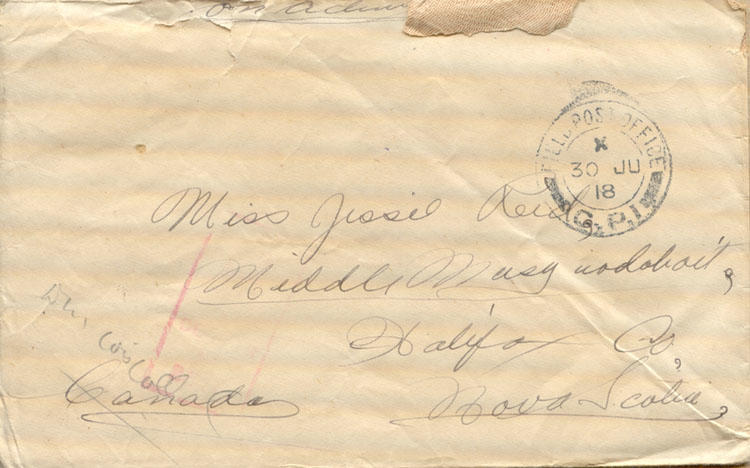 FIELD POST OFFICE
X
30 JU
18
G.P.1
Miss Jessie Reid,
Middle Musquodoboit,
Halifax Co,
Nova Scotia,
Canada